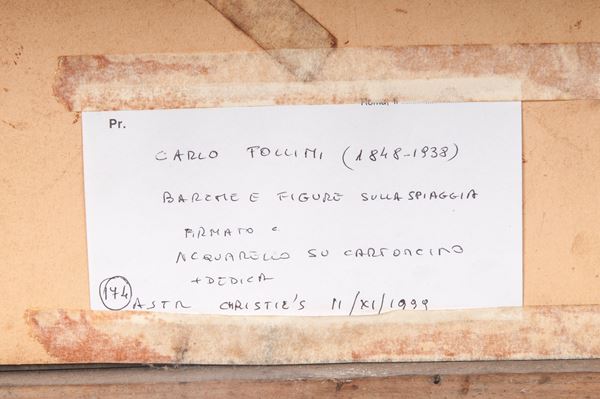 Roma, li
Pr.
CARLO FOLLINI (1848-1938)
BARCHE E FIGURE SULLA SPIAGGIA
FIRMATO
ACQUARELLO SU CARTONCINO
+ DEDICA
174 ASTA CHRISTIE'S 11/XI/1999